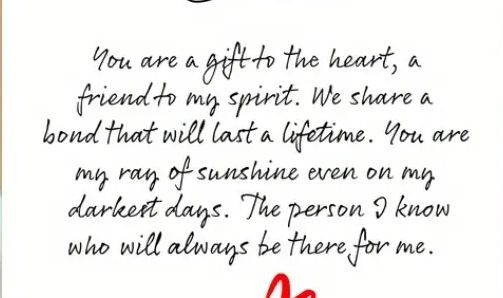 You are a gift to the heart, a
friend to my spirit. We share a
bond that will last a lifetime. You are
my ray of sunshine even on my
darkest days. The person I know
who will always be there for me.